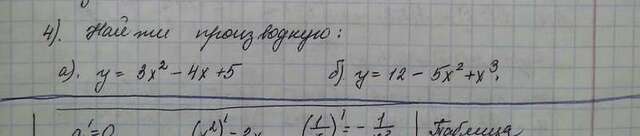 4). Найти производную:
а). y = 3x² − 4x + 5 б) y = 12 − 5x² + x³.
a' = 0 (x²)' = 2x (1/x)' = − 1/x² Таблица